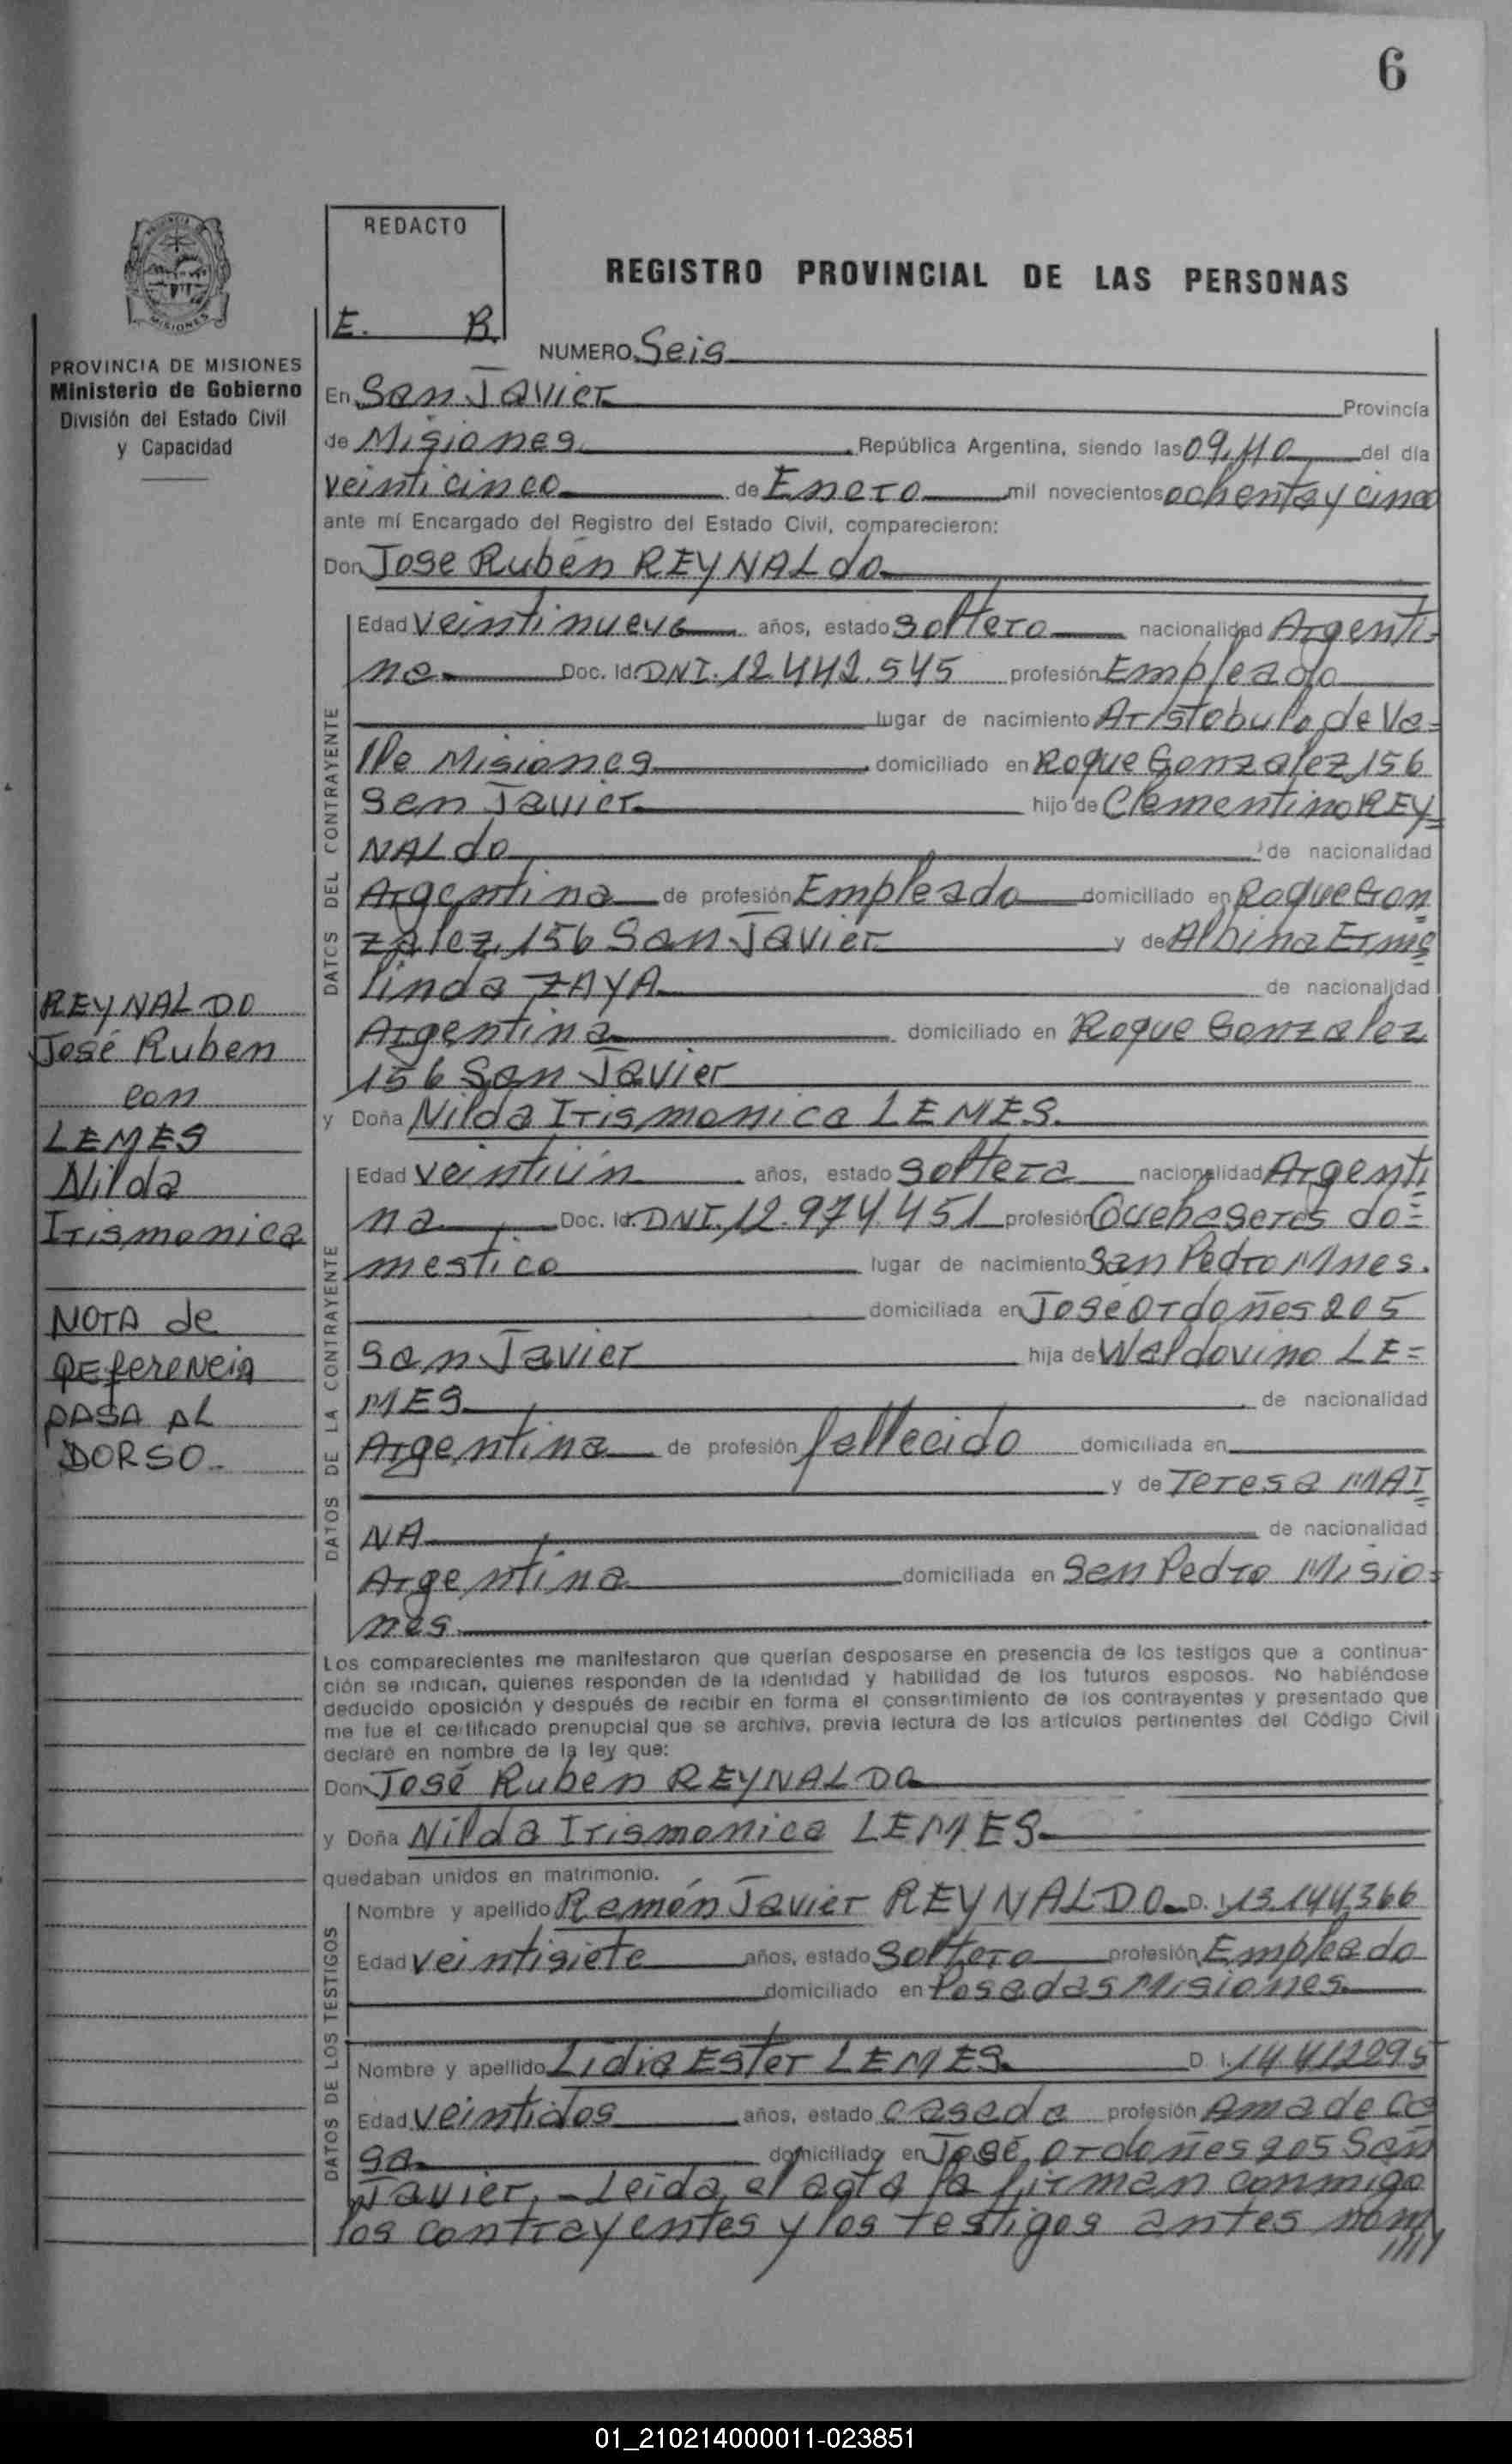 6
REDACTO
E. R.
REGISTRO PROVINCIAL DE LAS PERSONAS
MISIONES
PROVINCIA DE MISIONES
Ministerio de Gobierno
División del Estado Civil
y Capacidad
NUMERO Seis
En San Javier Provincia
de Misiones República Argentina, siendo las 09,40 del día
veinticinco de Enero mil novecientos ochenta y cinco
ante mí Encargado del Registro del Estado Civil, comparecieron:
Don Jose Rubén REYNALdo
DATOS DEL CONTRAYENTE
Edad veintinueve años, estado soltero nacionalidad Argenti-
na Doc. Id. DNI. 12.442.545 profesión Empleado
lugar de nacimiento Aristobulo de Va=
lle Misiones domiciliado en Roque Gonzalez 156
San Javier hijo de Clementino REY=
NALdo de nacionalidad
Argentina de profesión Empleado domiciliado en Roque Gon
zalez, 156 San Javier y de Albina Erme
linda ZAYA de nacionalidad
Argentina domiciliado en Roque Gonzalez
156 San Javier
y Doña Nilda Irismonica LEMES.
DATOS DE LA CONTRAYENTE
Edad veintiún años, estado soltera nacionalidad Argenti
na Doc. Id. DNI, 12.974.451 profesión Quehaseres do=
mestico lugar de nacimiento San Pedro Mnes.
domiciliada en José Ordoñes 205
San Javier hija de Waldovino LE=
MES de nacionalidad
Argentina de profesión fallecido domiciliada en
y de Teresa MAI
NA de nacionalidad
Argentina domiciliada en San Pedro Misio=
nes
REYNALDO
José Ruben
con
LEMES
Nilda
Irismonica
NOTA de
REferenciA
PASA AL
DORSO.
Los comparecientes me manifestaron que querían desposarse en presencia de los testigos que a continua-
ción se indican, quienes responden de la identidad y habilidad de los futuros esposos. No habiéndose
deducido oposición y después de recibir en forma el consentimiento de los contrayentes y presentado que
me fue el certificado prenupcial que se archiva, previa lectura de los artículos pertinentes del Código Civil
declaré en nombre de la ley que:
Don José Ruben REYNALDO
y Doña Nilda Irismonica LEMES
quedaban unidos en matrimonio.
DATOS DE LOS TESTIGOS
Nombre y apellido Ramón Javier REYNALDO D. I. 13.144.366
Edad veintisiete años, estado soltero profesión Empleado
domiciliado en Posadas Misiones
Nombre y apellido Lidia Ester LEMES D. I. 14 412095
Edad veintidos años, estado casada profesión Ama de Ca
sa domiciliado en José Ordoñes 205 San
Javier,- Leida el acta la firman conmigo
los contrayentes y los testigos antes nom////
01_210214000011-023851